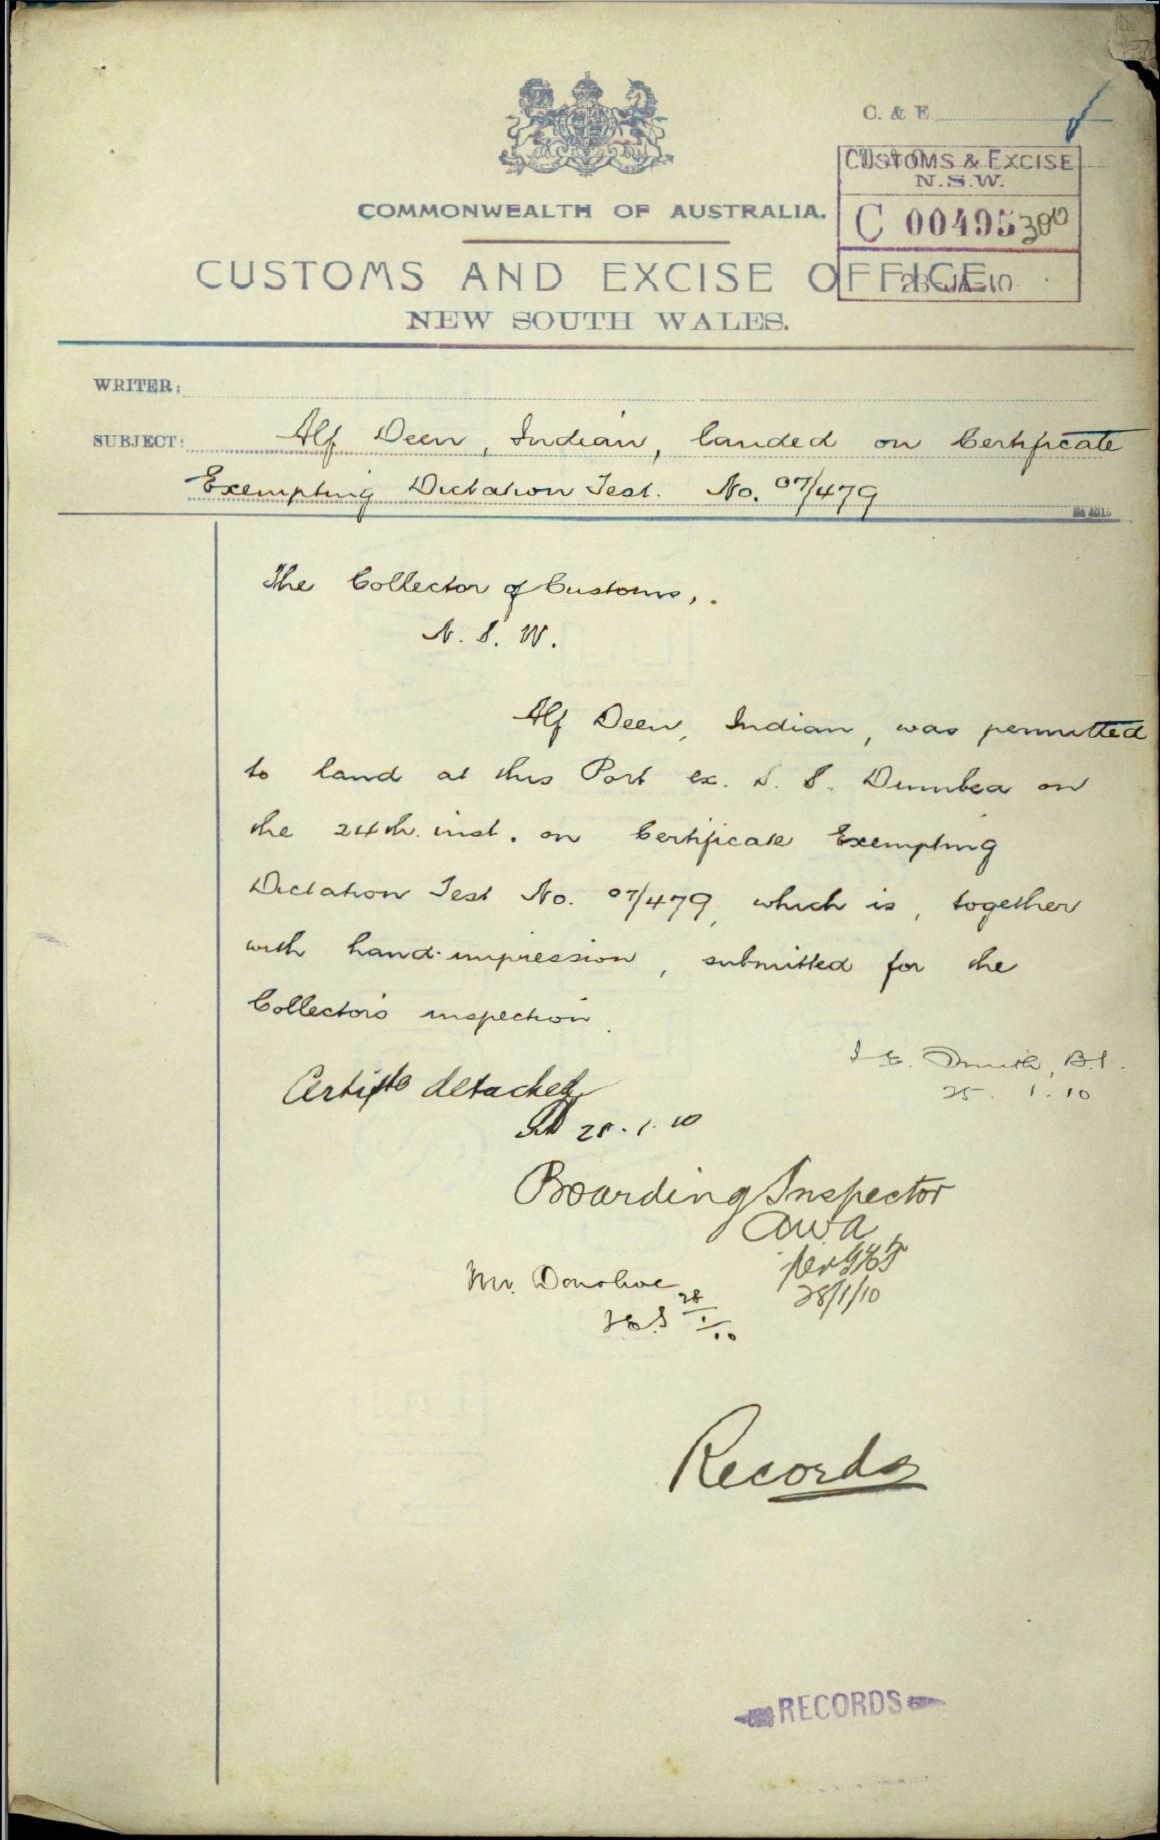 C. & E.
CUSTOMS & EXCISE
N.S.W.
C 00495 300
28 JA 10
COMMONWEALTH OF AUSTRALIA.
CUSTOMS AND EXCISE OFFICE,
NEW SOUTH WALES.
WRITER:
SUBJECT: Alf Deen, Indian, landed on Certificate
Exempting Dictation Test. No. 07/479
The Collector of Customs,
N. S. W.
Alf Deen, Indian, was permitted
to land at this Port ex. S. S. Dumbea on
the 24th. inst. on Certificate Exempting
Dictation Test No. 07/479, which is, together
with hand-impression, submitted for the
Collector's inspection.
Smith, B.I.
25. 1. 10
detached
1. 10
Boarding Inspector
AWA
28/1/10
Mr. Donohoe
28/1/10
Records
RECORDS